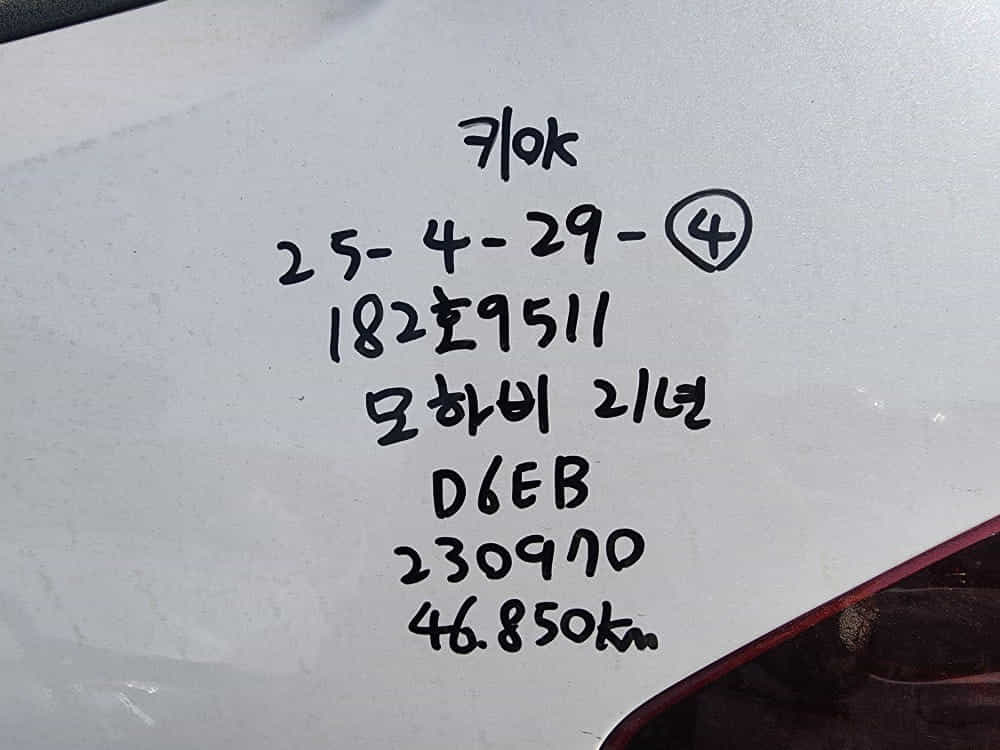 키OK
25-4-29-④
182호9511
모하비 21년
D6EB
230970
46.850km